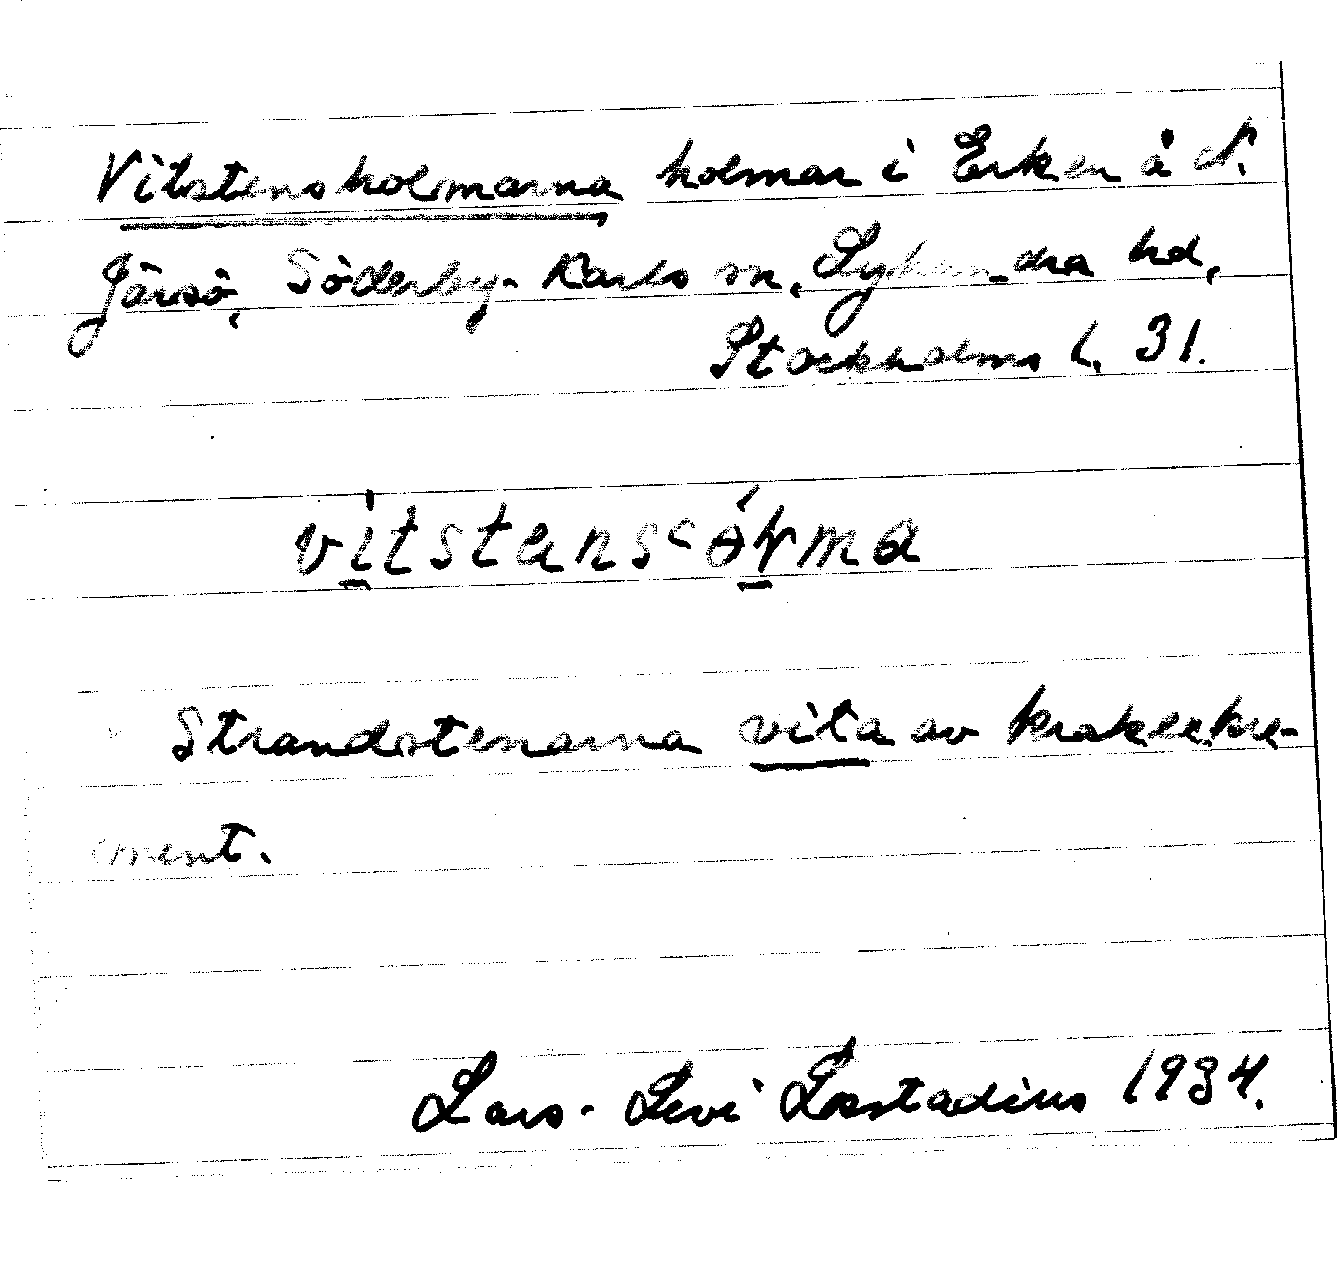 Vitstensholmarna holmar i Erken å N.
Järsö, Söderby-Karls sn, Lyhundra hd,
Stockholms l. 31.
vi̲tstensɵ́rma
Strandstenarna vita av kråkexkre-
ment.
Lars-Levi Læstadius 1934.